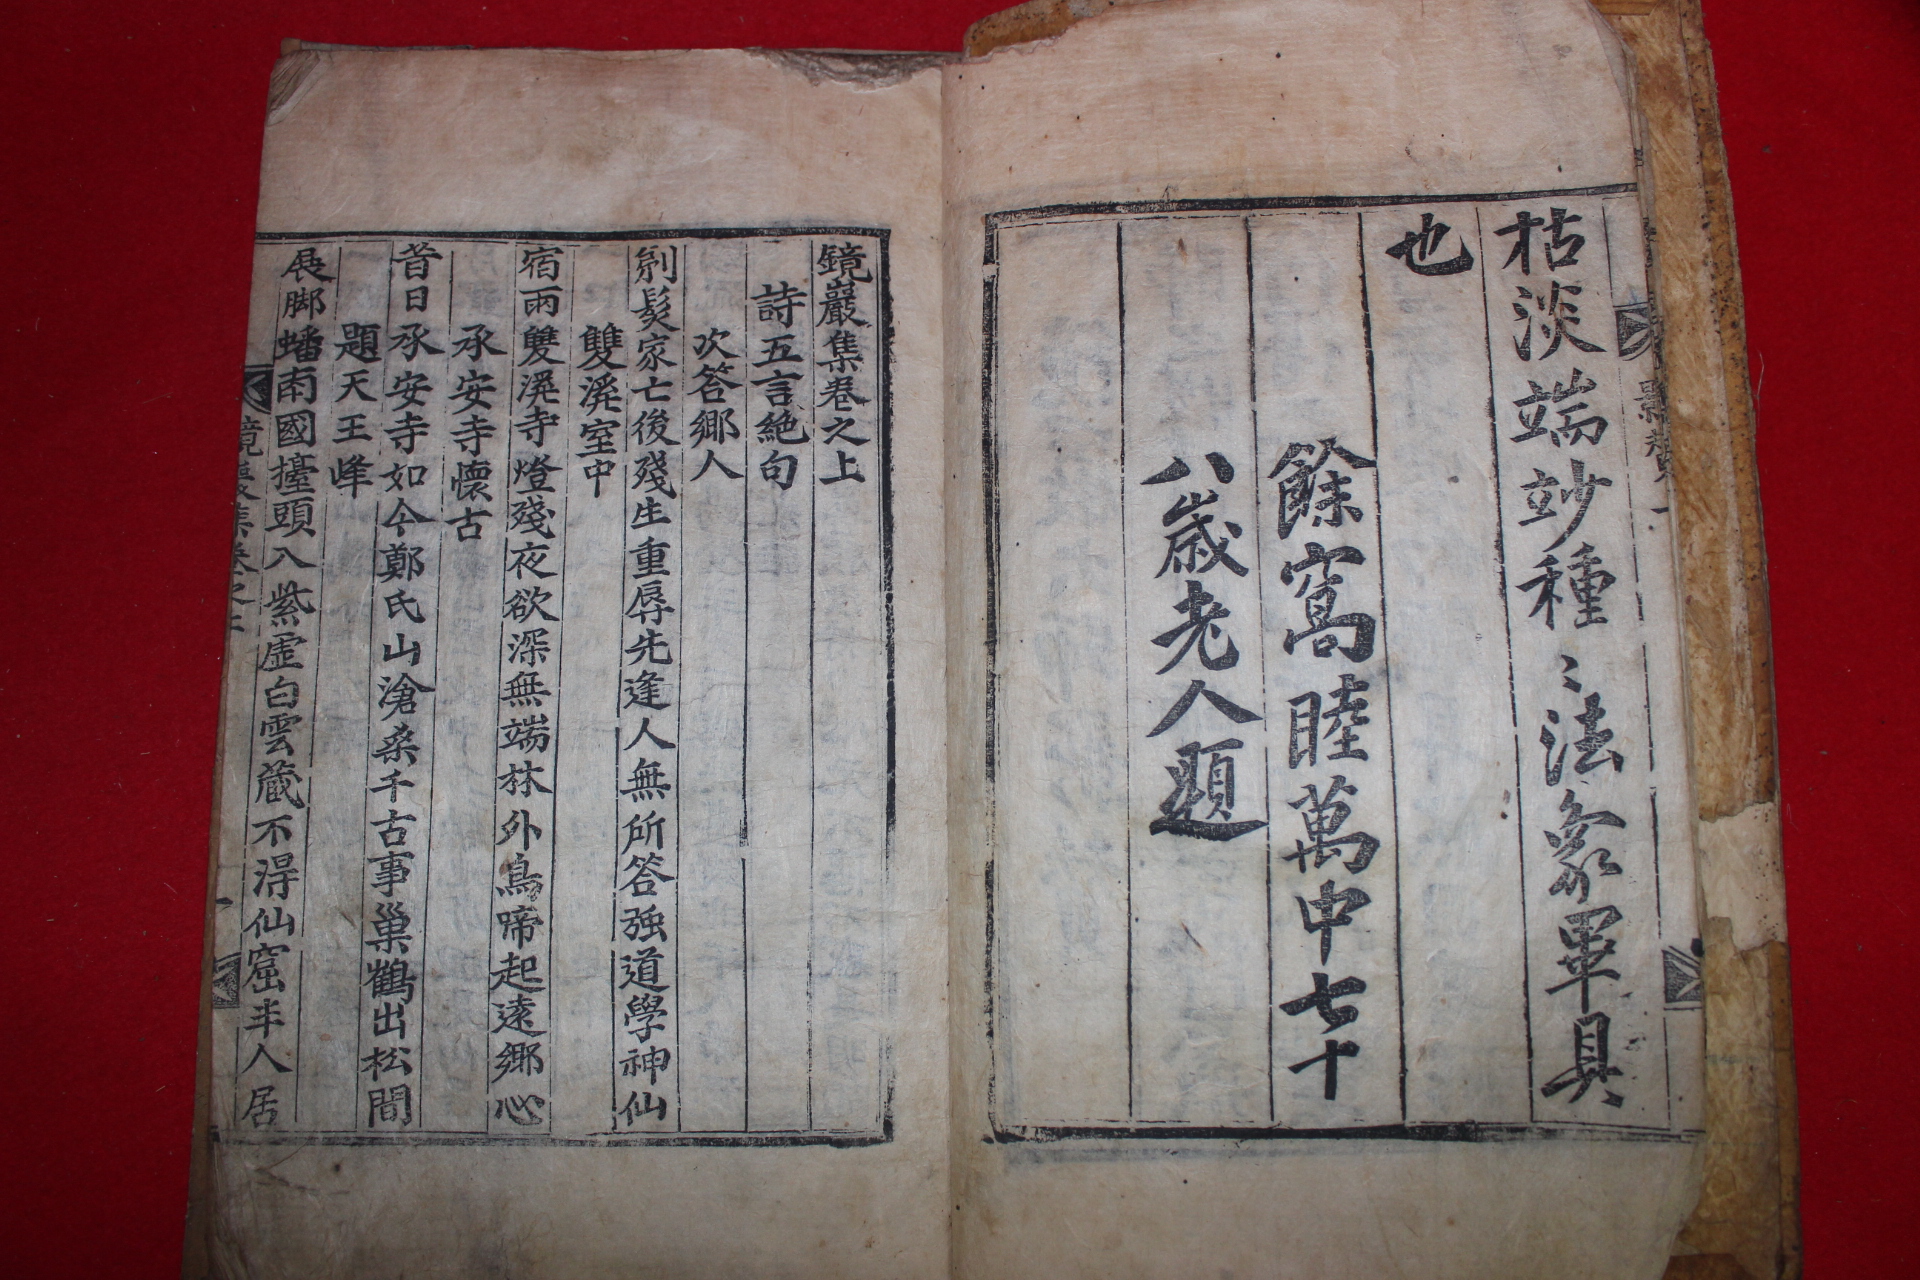 枯淡端竗種〻法象畢具
也
餘窩睦萬中七十
八歲老人題
影贊
鏡巖集卷之上
詩五言絶句
次答鄉人
剃髮家亡後殘生重辱先逢人無所答強道學神仙
雙溪室中
宿雨雙溪寺燈殘夜欲深無端林外鳥啼起遠鄉心
承安寺懷古
昔日承安寺如今鄭氏山滄桑千古事巢鶴出松間
題天王峰
展脚蟠南國擡頭入紫虛白雲藏不得仙窟半人居
鏡巖集卷之上